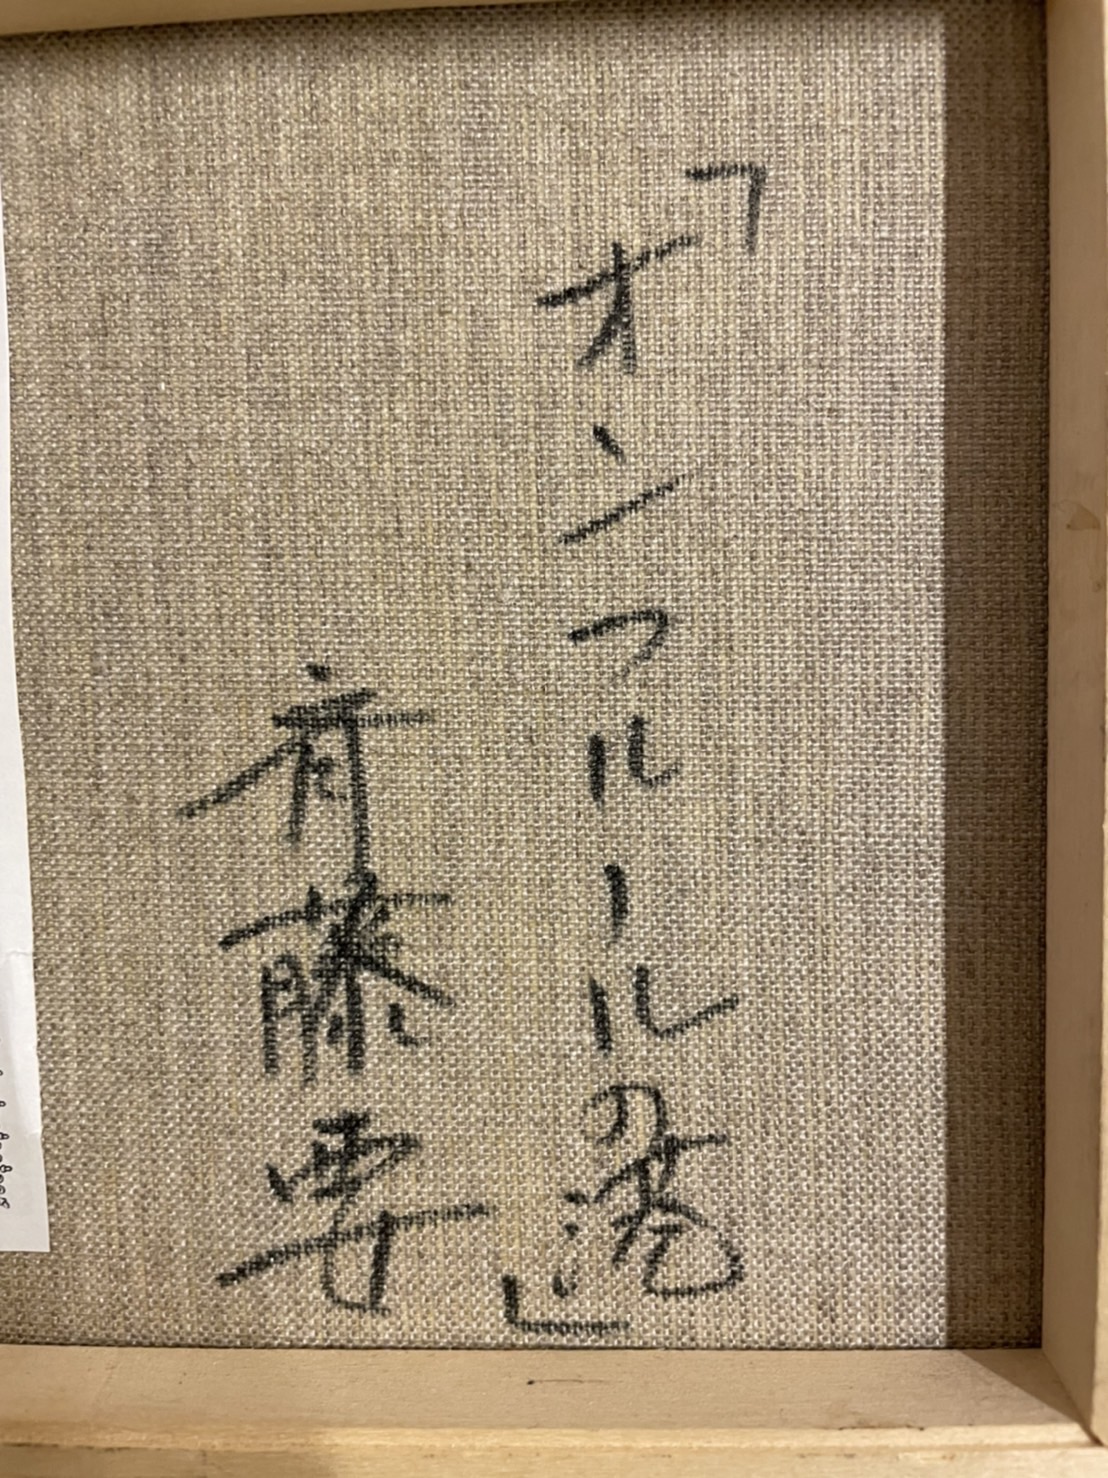 「オンフルールの港」
斎藤